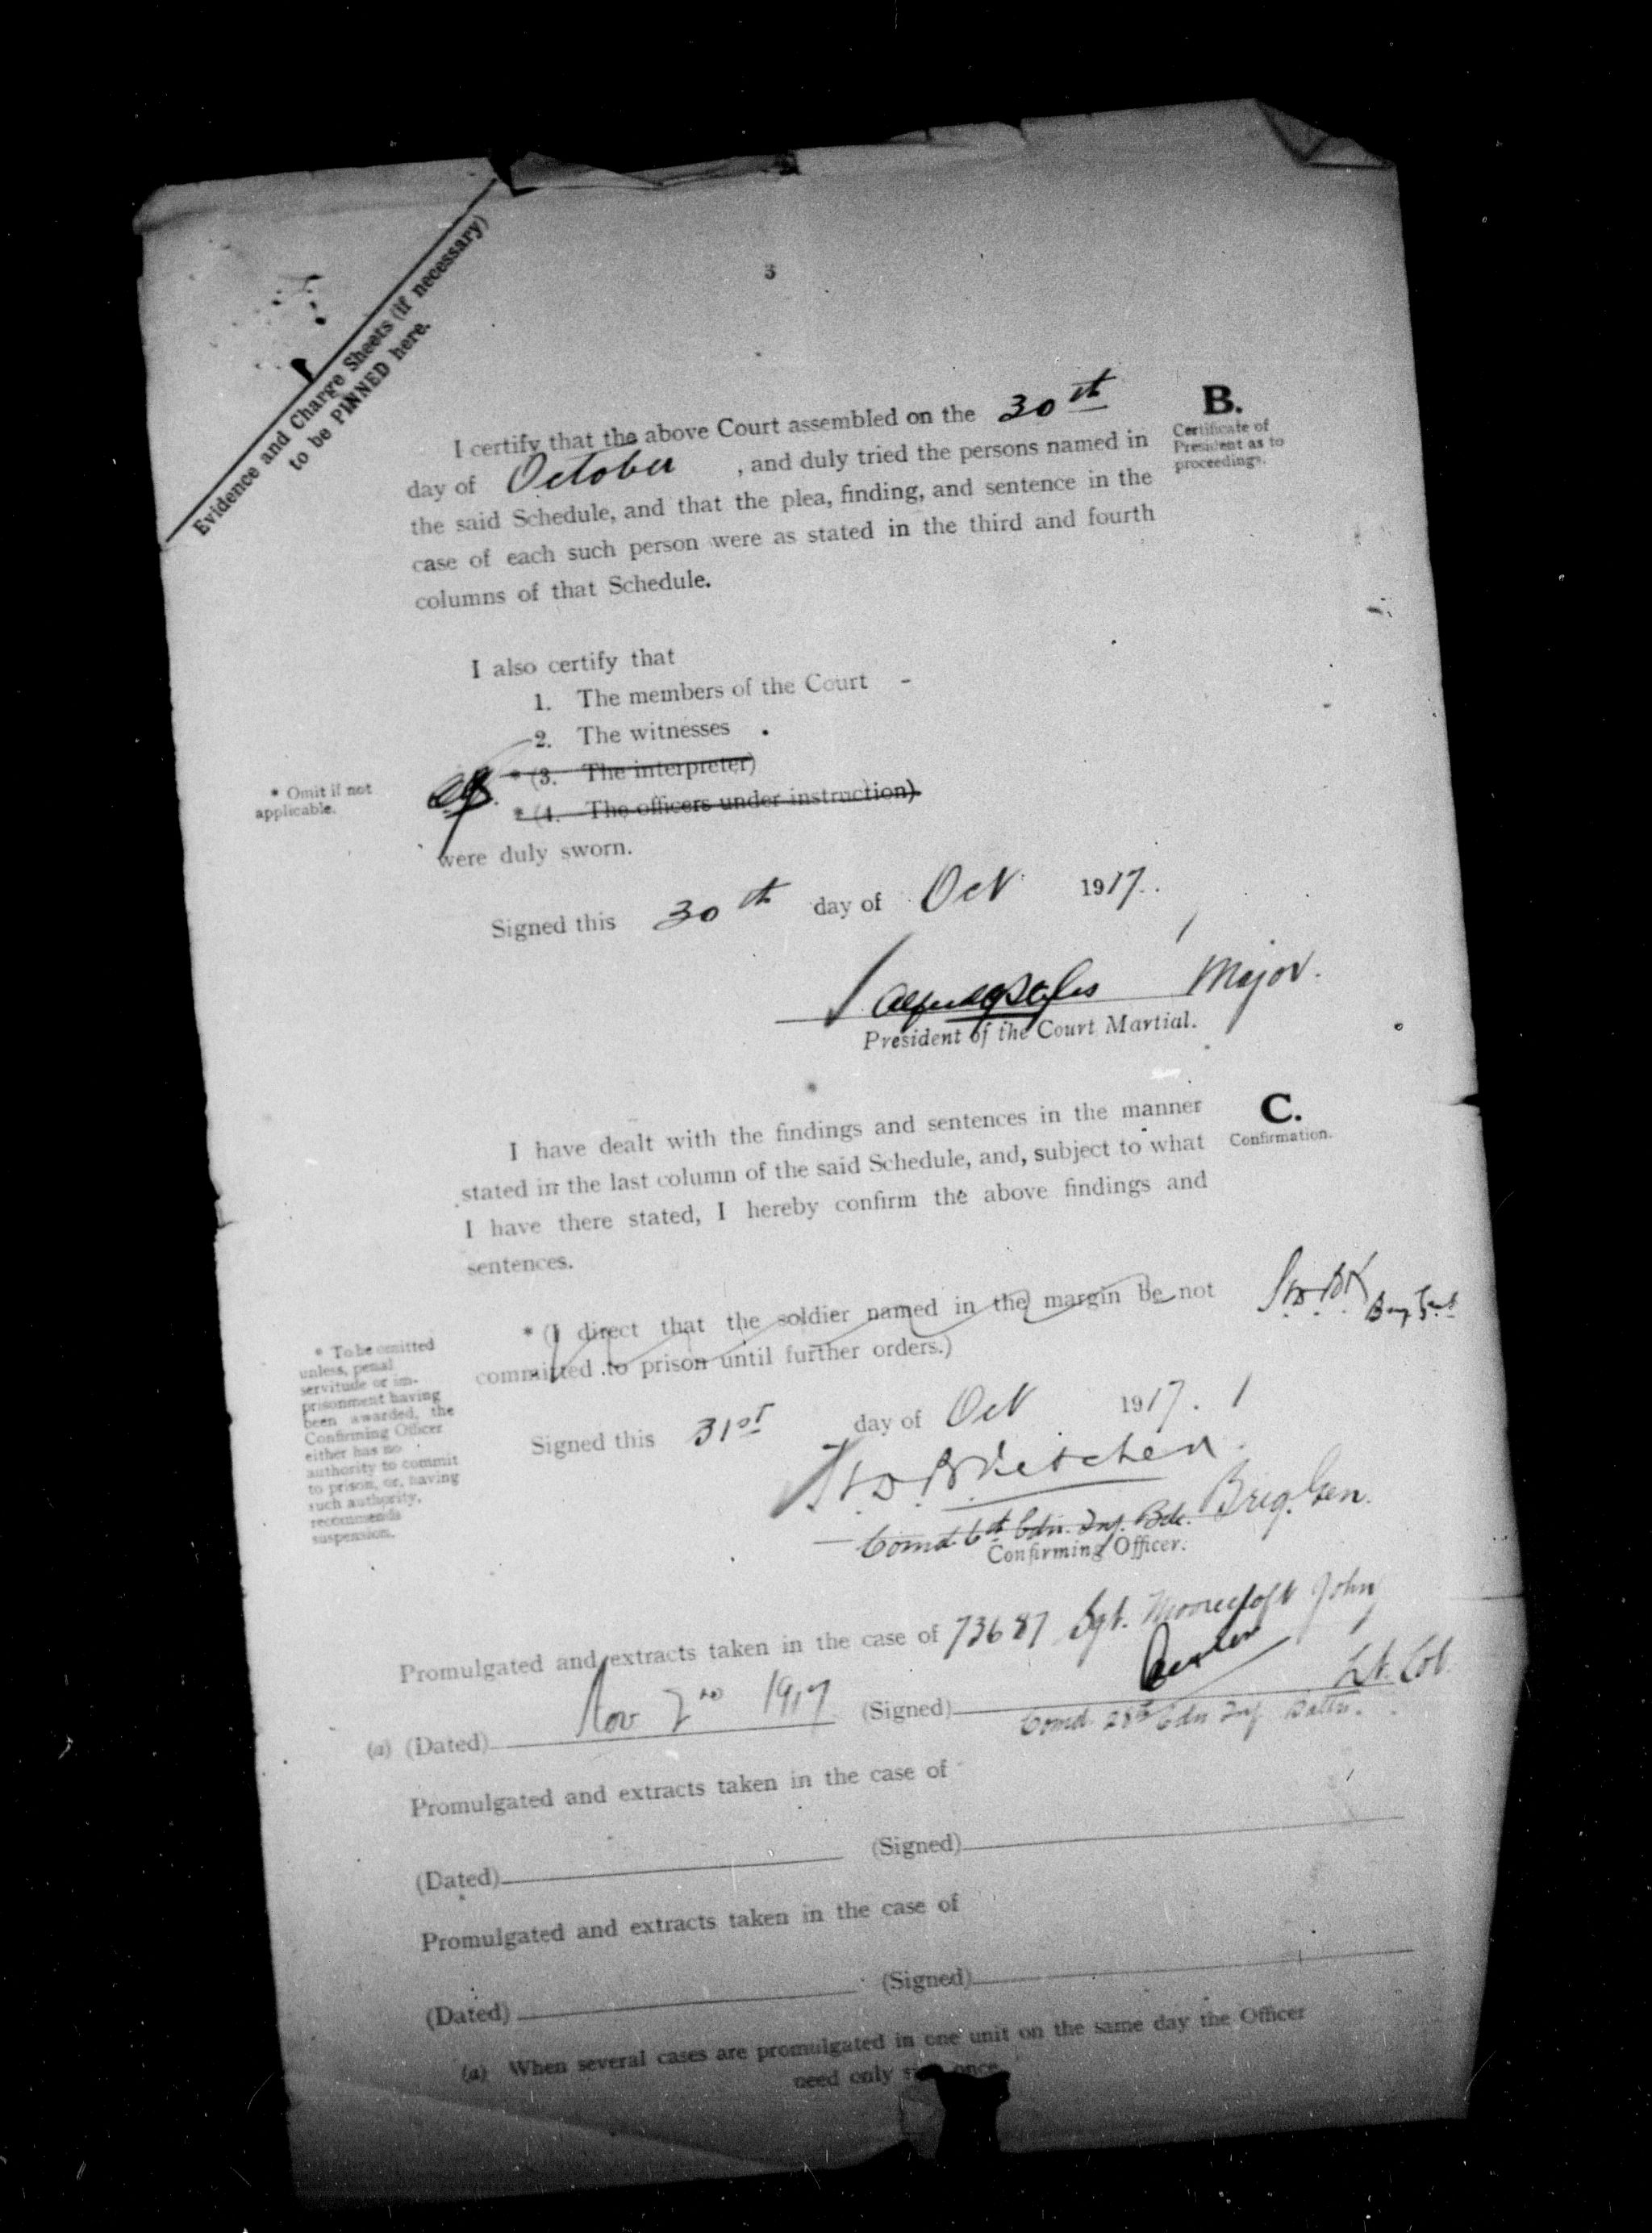 Evidence and Charge Sheets (if necessary)
to be PINNED here.
3
I certify that the above Court assembled on the 30th
day of October , and duly tried the persons named in
the said Schedule, and that the plea, finding, and sentence in the
case of each such person were as stated in the third and fourth
columns of that Schedule.
B.
Certificate of
President as to
proceedings.
I also certify that
1. The members of the Court -
2. The witnesses .
* (3. The interpreter)
* (4. The officers under instruction)
* Omit if not
applicable.
were duly sworn.
Signed this 30th day of Oct 1917.
Major.
President of the Court Martial.
I have dealt with the findings and sentences in the manner
stated in the last column of the said Schedule, and, subject to what
I have there stated, I hereby confirm the above findings and
sentences.
C.
Confirmation.
* (I direct that the soldier named in the margin be not
committed to prison until further orders.)
* To be omitted
unless, penal
servitude or im-
prisonment having
been awarded, the
Confirming Officer
either has no
authority to commit
to prison, or, having
such authority,
recommends
suspension.
Signed this 31st day of Oct 1917.
Ketchen
Brig. Gen.
Comd 6th Cdn. Inf. Bde.
Confirming Officer.
Promulgated and extracts taken in the case of 73687 Sgt. Moorecroft John
(a) (Dated) Nov 2nd 1917 (Signed) Lt. Col.
Comd 28th Cdn Inf Battn.
Promulgated and extracts taken in the case of
(Dated) (Signed)
Promulgated and extracts taken in the case of
(Dated) (Signed)
(a) When several cases are promulgated in one unit on the same day the Officer
need only sign once.